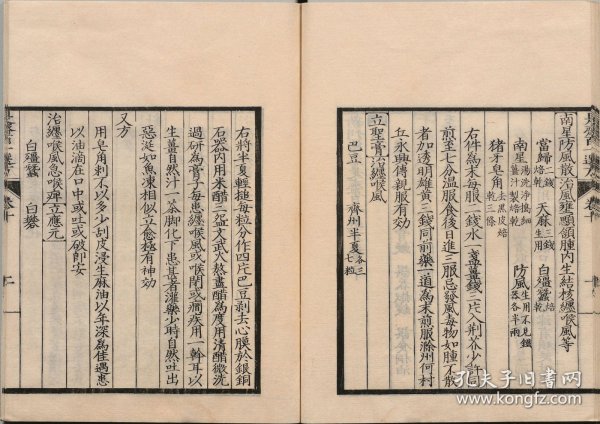 南星防風散治風壅頸頷腫内生結核纏喉風等
當歸二錢焙乾 天麻三錢生用 白殭蠶焙乾
南星湯洗浄搗細薑汁製焙乾 防風生用不見鐵器各半兩
猪牙皂角去黑皮焙乾三條
右件為末每服一錢水一盞薑錢三片入荆芥少許
煎至七分温服食後日進三服忌發風毒物如腫不散
者加透明雄黄三錢同前藥一道為末煎服滁州何村
丘永興傳親服有効
立聖膏治纏喉風
巴豆 齊州半夏各三七粒
右將半夏輕搥每粒分作四片巴豆剥去心膜於銀銅
石器内用米醋三盌文武火熬盡醋為度用清醋微洗
過研為膏子每患纏喉風或喉閉或澗疾用一幹耳以
生薑自然汁一茶脚化下患甚者灌藥少時自然吐出
惡涎如魚凍相似立愈極有神効
又方
用皂角刺不以多少刮皮浸生麻油以年深為佳遇患
以油滴在口中或吐或破即安
治纏喉風急喉痺立應元
白殭蠶 白礬
孔夫子旧书网
www.kongfz.com